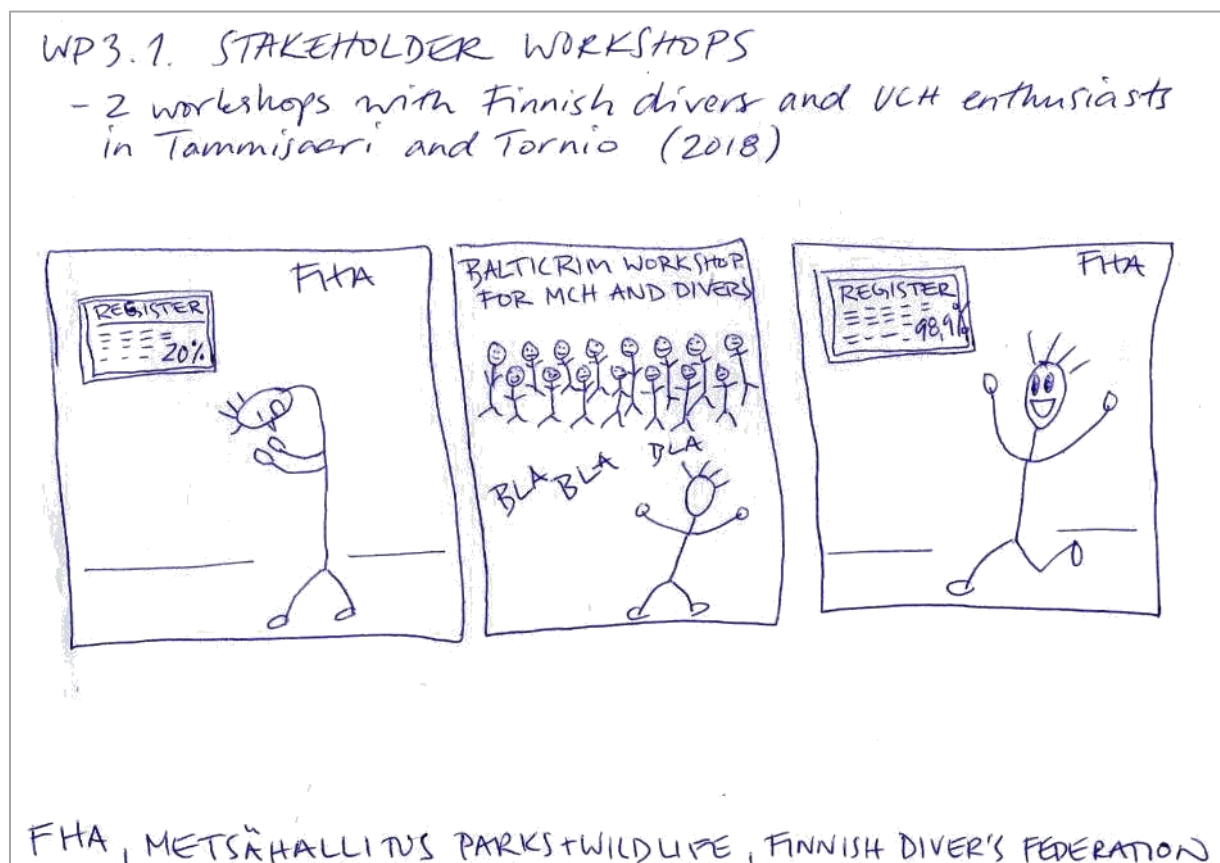 WP3.1. STAKEHOLDER WORKSHOPS
- 2 workshops with Finnish divers and UCH enthusiasts
in Tammisaari and Tornio (2018)
FHA
REGISTER
20%
BALTICRIM WORKSHOP
FOR MCH AND DIVERS
BLA BLA BLA
FHA
REGISTER
98,9%
FHA, METSÄHALLITUS PARKS+WILDLIFE, FINNISH DIVER'S FEDERATION